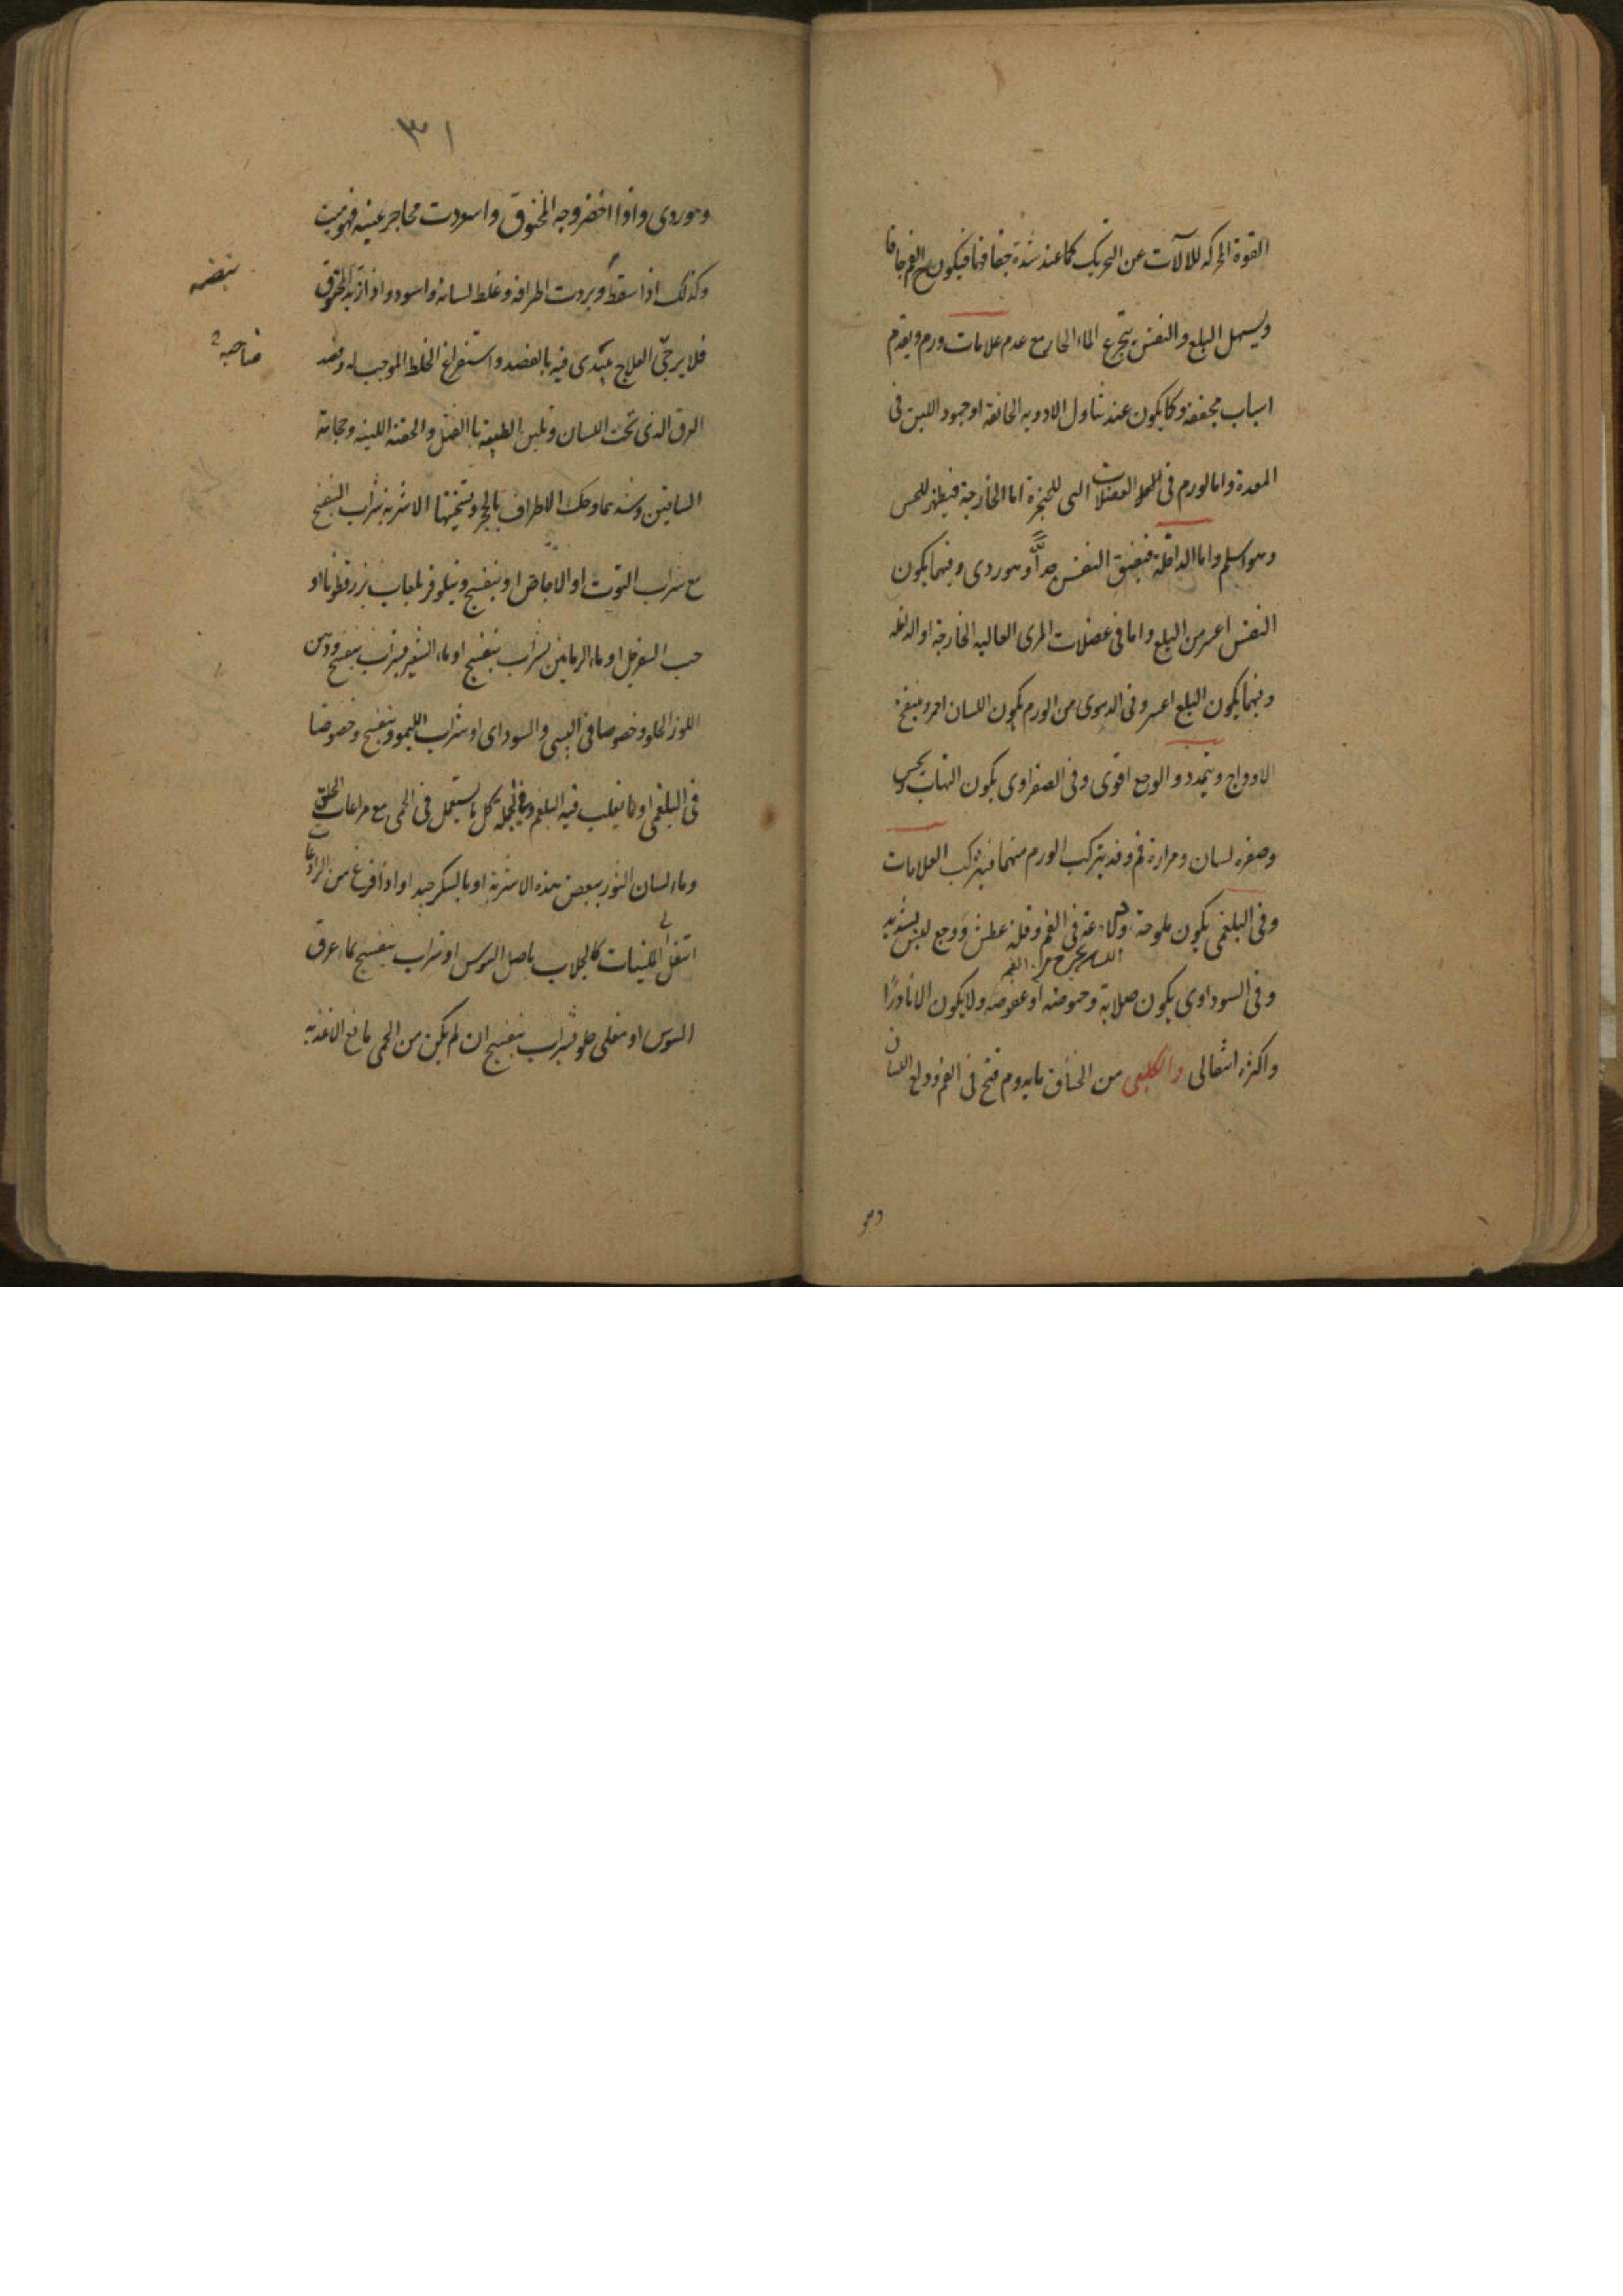 القوة المحركه للالآت عن التحريك كما عند شدة جفافها فيكون الفم جافا
ويسهل البلع والنفس بتجرع الماء الحار مع عدم علامات ورم ويقدم
اسباب مجففة وكما يكون عند تناول الادويه الخانقة او جمود اللبن فى
المعدة واما لورم فى العضلات التى للحنجرة اما الخارجة فيظهر للحس
وهو اسلم واما الداخلة فيضيق النفس جداً وهو ردى وفيهما يكون
النفس اعسر من البلع واما فى عضلات المرى العاليه الخارجة او الداخله
وفيهما يكون البلع اعسر وفى الدموى من الورم يكون اللسان احمر وينتفخ
الاوداج ويتمدد والوجع اقوى وفى الصفراوى يكون التهاب ويبس
وصفره لسان ومرارة فم وقد يتركب الورم منهما فيتركب العلامات
وفى البلغمى يكون ملوحة فى الفم وقلة عطش ووجع ليس بشديد
وفى السوداوى يكون صلابة وحموضه او عفوصه ولا يكون الا نادرًا
واكثره انتقالى والكلبى من الخناق ما يدوم فتح فى الفم ودلع اللسان
وهو
٣١
وهو ردى واذا اخضر وجه المخنوق واسودت محاجر عينه فهو ميت
وكذلك اذا سقط وبردت اطرافه وغلظ لسانه واسود واذا ازبد المخنوق
نبضه
فلا يرجى العلاج يبتدى فيه بالفصد واستفراغ الخلط الموجب له وفصد
صاحبه
العرق الذى تحت اللسان وتليين الطبيعة بالفتل والحقنة اللينه وحجامة
الساقين وشدهما وحك الاطراف بالحجر وتسخينها الاشربة شراب البنفسج
مع شراب التوت او الاجاص او بنفسج ونيلوفر بلعاب بزر قطونا او
حب السفرجل او ماء الرمانين بشراب بنفسج او ماء الشعير بشراب بنفسج ودهن
اللوز الحلو وخصوصا فى اليبسى والسوداى او شراب الليمو وبنفسج وخصوصا
فى البلغمى او ما يغلب فيه البلغم وفى الجملة كل ما يستعمل فى الحمى مع مراعات الحلق
وماء لسان الثور ببعض هذه الاشربة او بالسكر جيد او اذا فرغ من الرادعات
انتقل الى الملينات كالجلاب باصل السوس او شراب بنفسج بماء عرق
السوس او مغلى حلو بشراب بنفسج ان لم يكن من الحمى مانع الاغذيه